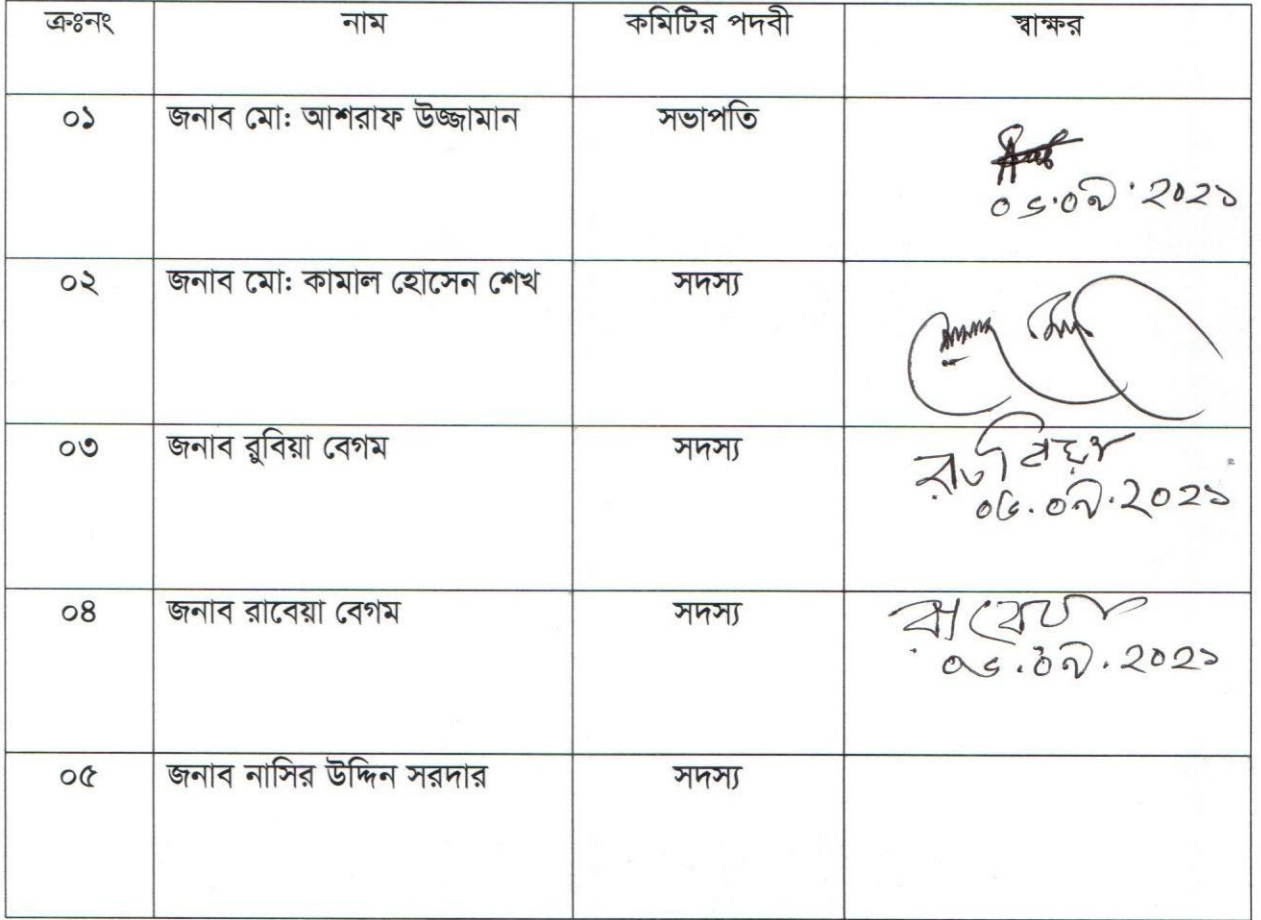 ক্রঃনং নাম কমিটির পদবী স্বাক্ষর
০১ জনাব মো: আশরাফ উজ্জামান সভাপতি
০৬.০৯.২০২১
০২ জনাব মো: কামাল হোসেন শেখ সদস্য
০৩ জনাব রুবিয়া বেগম সদস্য
০৬.০৯.২০২১
০৪ জনাব রাবেয়া বেগম সদস্য রাবেয়া
০৬.০৯.২০২১
০৫ জনাব নাসির উদ্দিন সরদার সদস্য